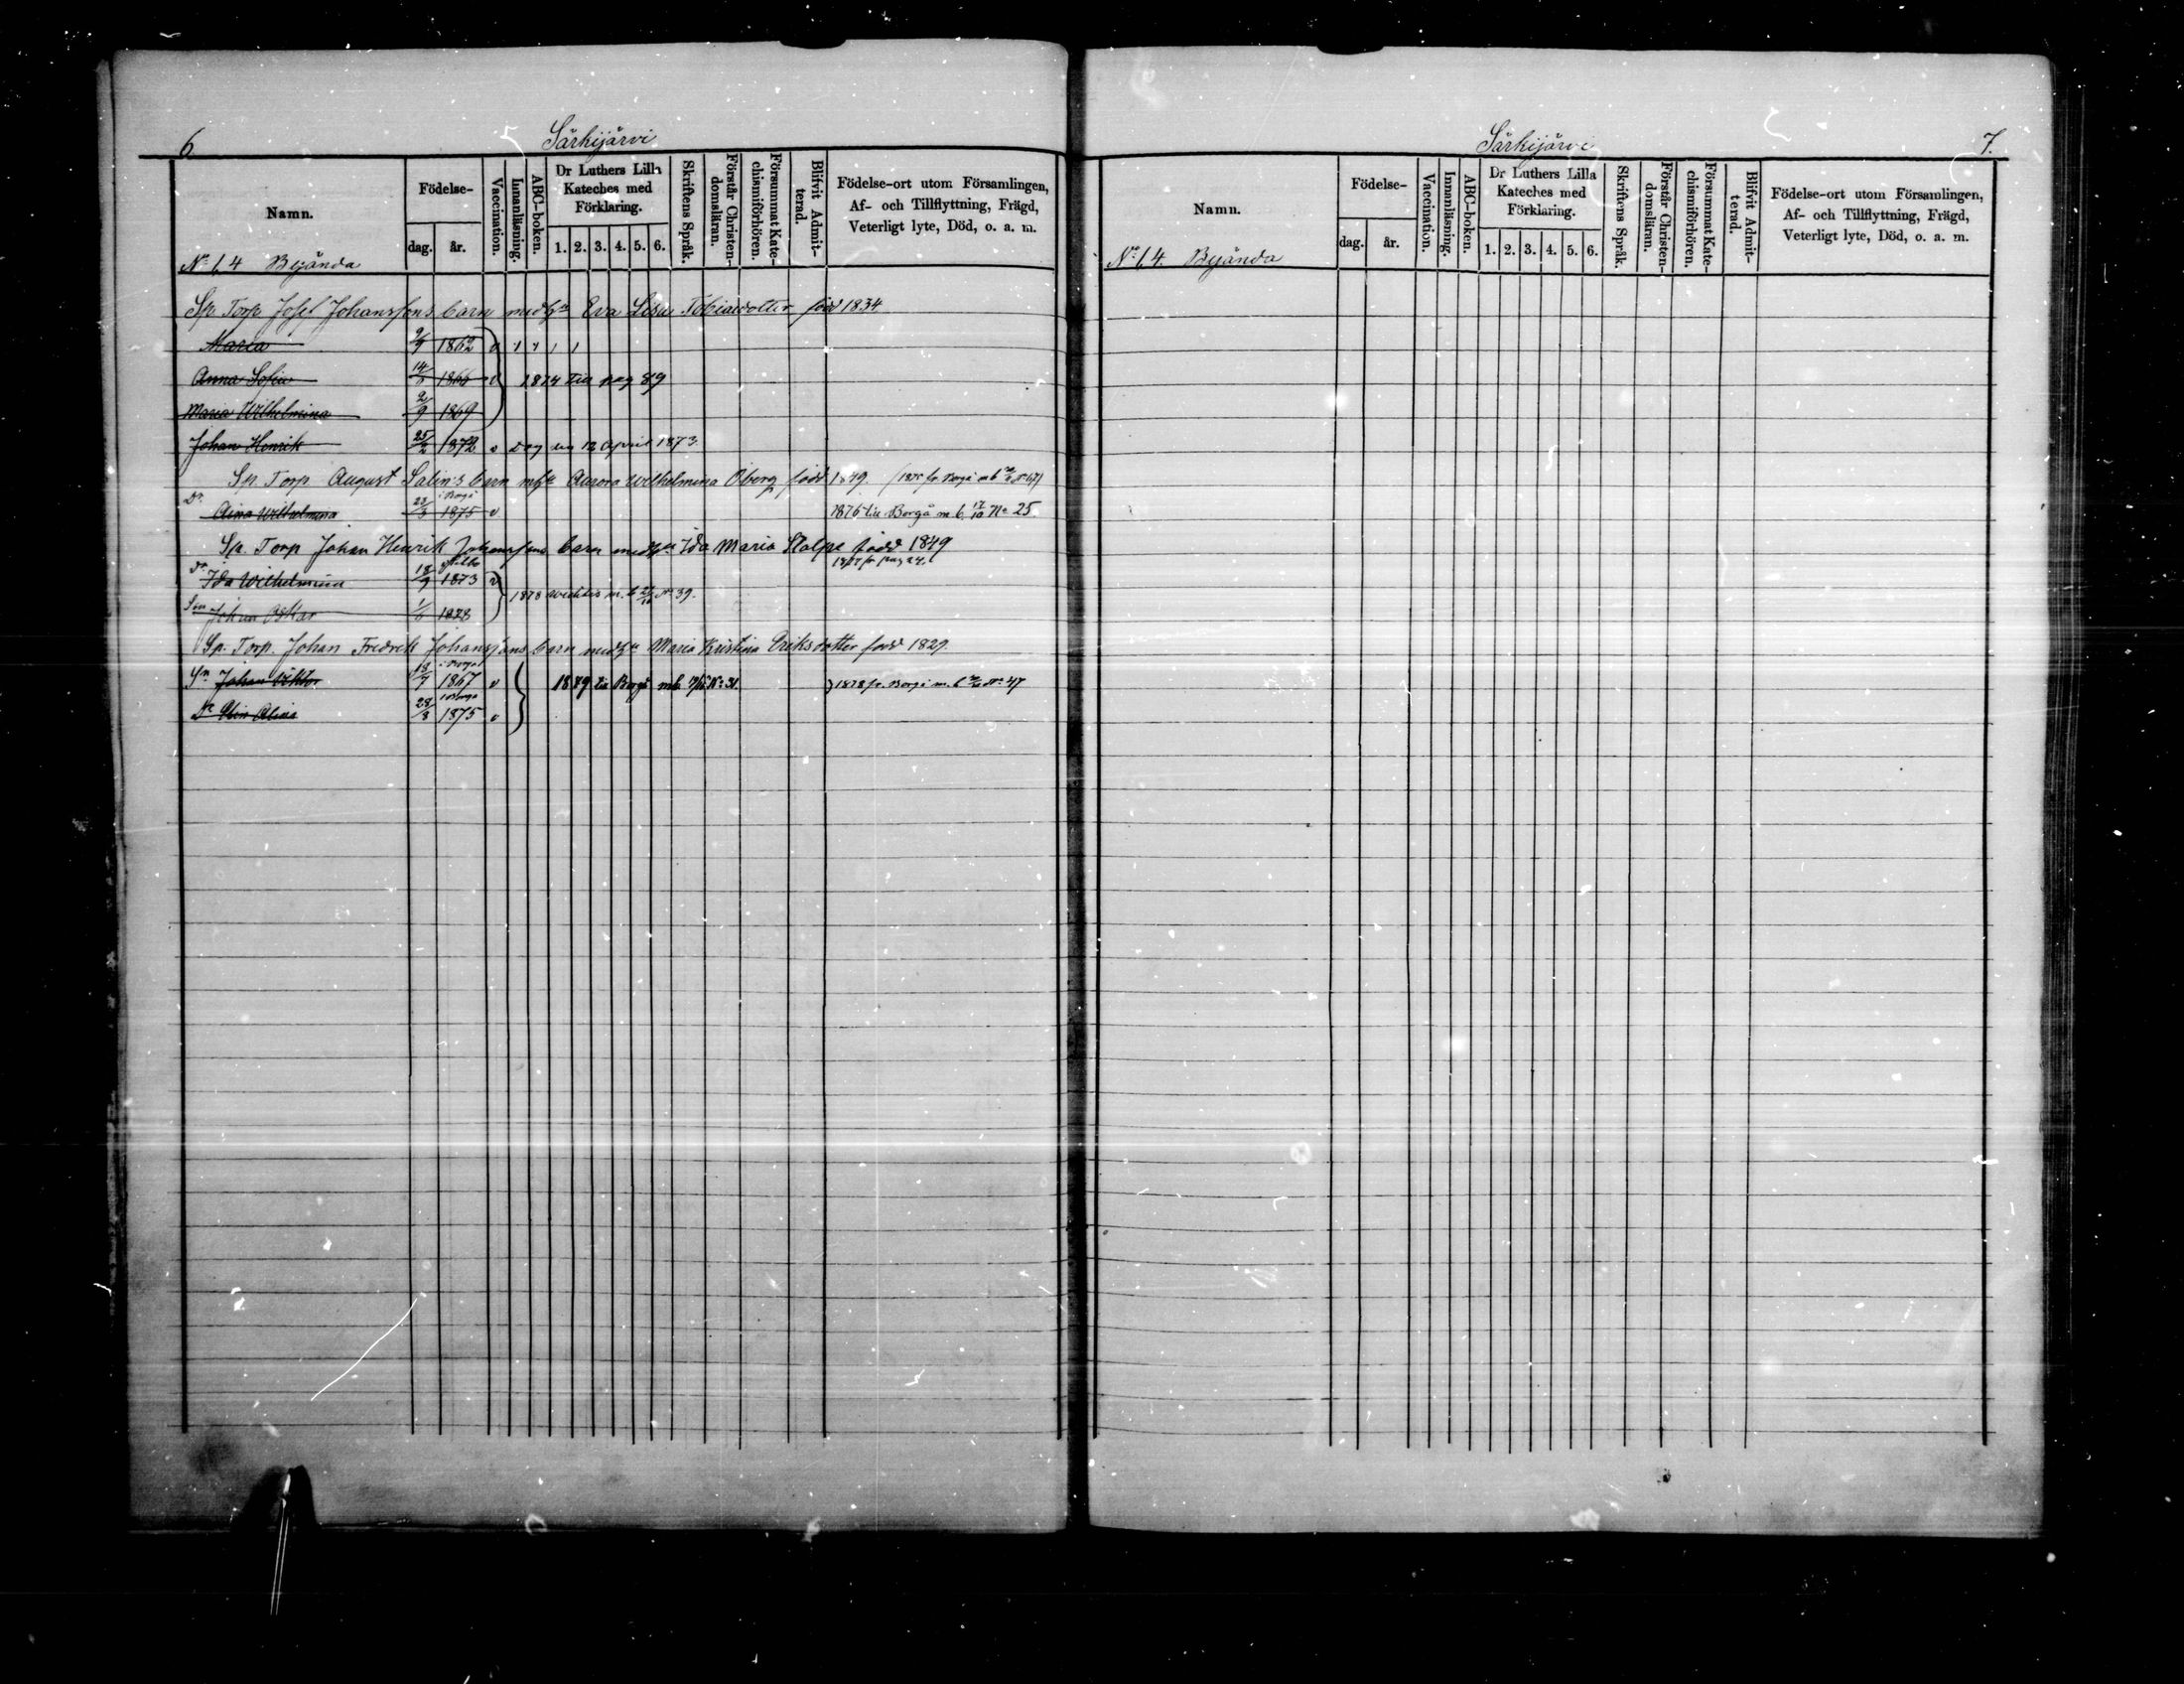 6
Särkijärvi
Namn.
Födelse-
dag.
år.
Vaccination.
Innanläsning.
ABC-boken.
Dr Luthers Lilla
Kateches med
Förklaring.
1. 2. 3. 4. 5. 6.
Skriftens Språk.
Förstår Christen-
domsläran.
Försummat Kate-
chismiförhören.
Blifvit Admit-
terad.
Födelse-ort utom Församlingen,
Af- och Tillflyttning, Frägd,
Veterligt lyte, Död, o. a. m.
No 1,4 Byända
Sp. Torp. Josef Johanssons barn med hu Eva Lisa Tobiasdotter född 1834
Maria 9/9 1862 v
Anna Sofia 1866 v 1874 till pag 89
Maria Wilhelmina 2/9 1869
Johan Henrik 25/2 1872 v Dog den 12 April 1873
Sp. Torp August Salin:s barn m hu Aurora Wilhelmina Öberg född 1849. (1875 fr. Borgå m b No 67)
i Borgå
Dr Aina Wilhelmina 23/3 1875 v 1876 till Borgå m b. 17/10 No 25.
Sp. Torp Johan Henrik Johanssons barn med hu Ida Maria Stolpe född 1849
1877 fr pag 24.
Dr Ida Wilhelmina 18/9 1873 v
1878 Wichtis m. b No 39.
Son Johan Oskar 1878
Sp. Torp. Johan Fredrik Johanssons barn med hu Maria Kristina Eriksdotter född 1829.
i Borgå
Sn Johan Viktor 18/7 1867 v 1879 till Borgå mb. No 31. 1878 fr. Borgå m. b No 47
i Borgå
Dr Alina 28/8 1875 v
Särkijärvi
7.
Namn.
Födelse-
dag.
år.
Vaccination.
Innanläsning.
ABC-boken.
Dr Luthers Lilla
Kateches med
Förklaring.
1. 2. 3. 4. 5. 6.
Skriftens Språk.
Förstår Christen-
domsläran.
Försummat Kate-
chismiförhören.
Blifvit Admit-
terad.
Födelse-ort utom Församlingen,
Af- och Tillflyttning, Frägd,
Veterligt lyte, Död, o. a. m.
No 1,4. Byända